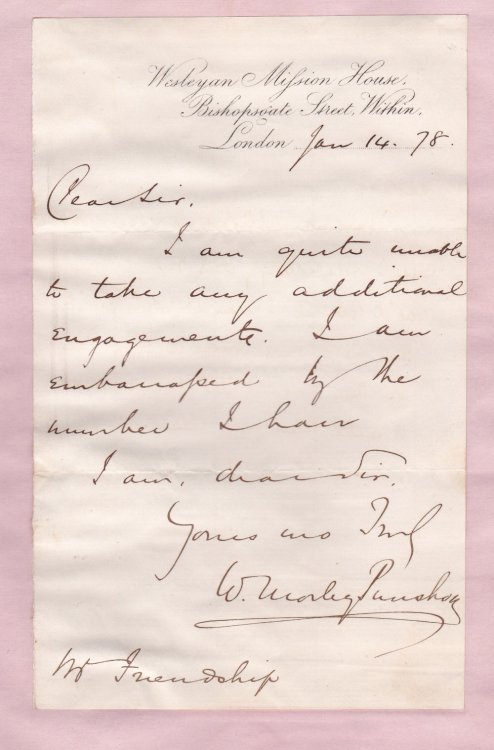 Wesleyan Mission House,
Bishopsgate Street, Within,
London Jan 14. 78.
Dear Sir.
I am quite unable
to take any additional
Engagements. I am
Embarrassed by the
number I have
I am, dear Sir,
Yours
W. Morley Punshon
Mr Friendship